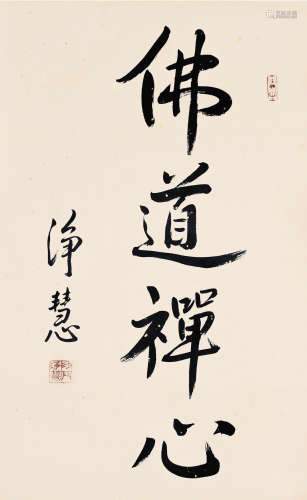 佛道禪心
淨慧